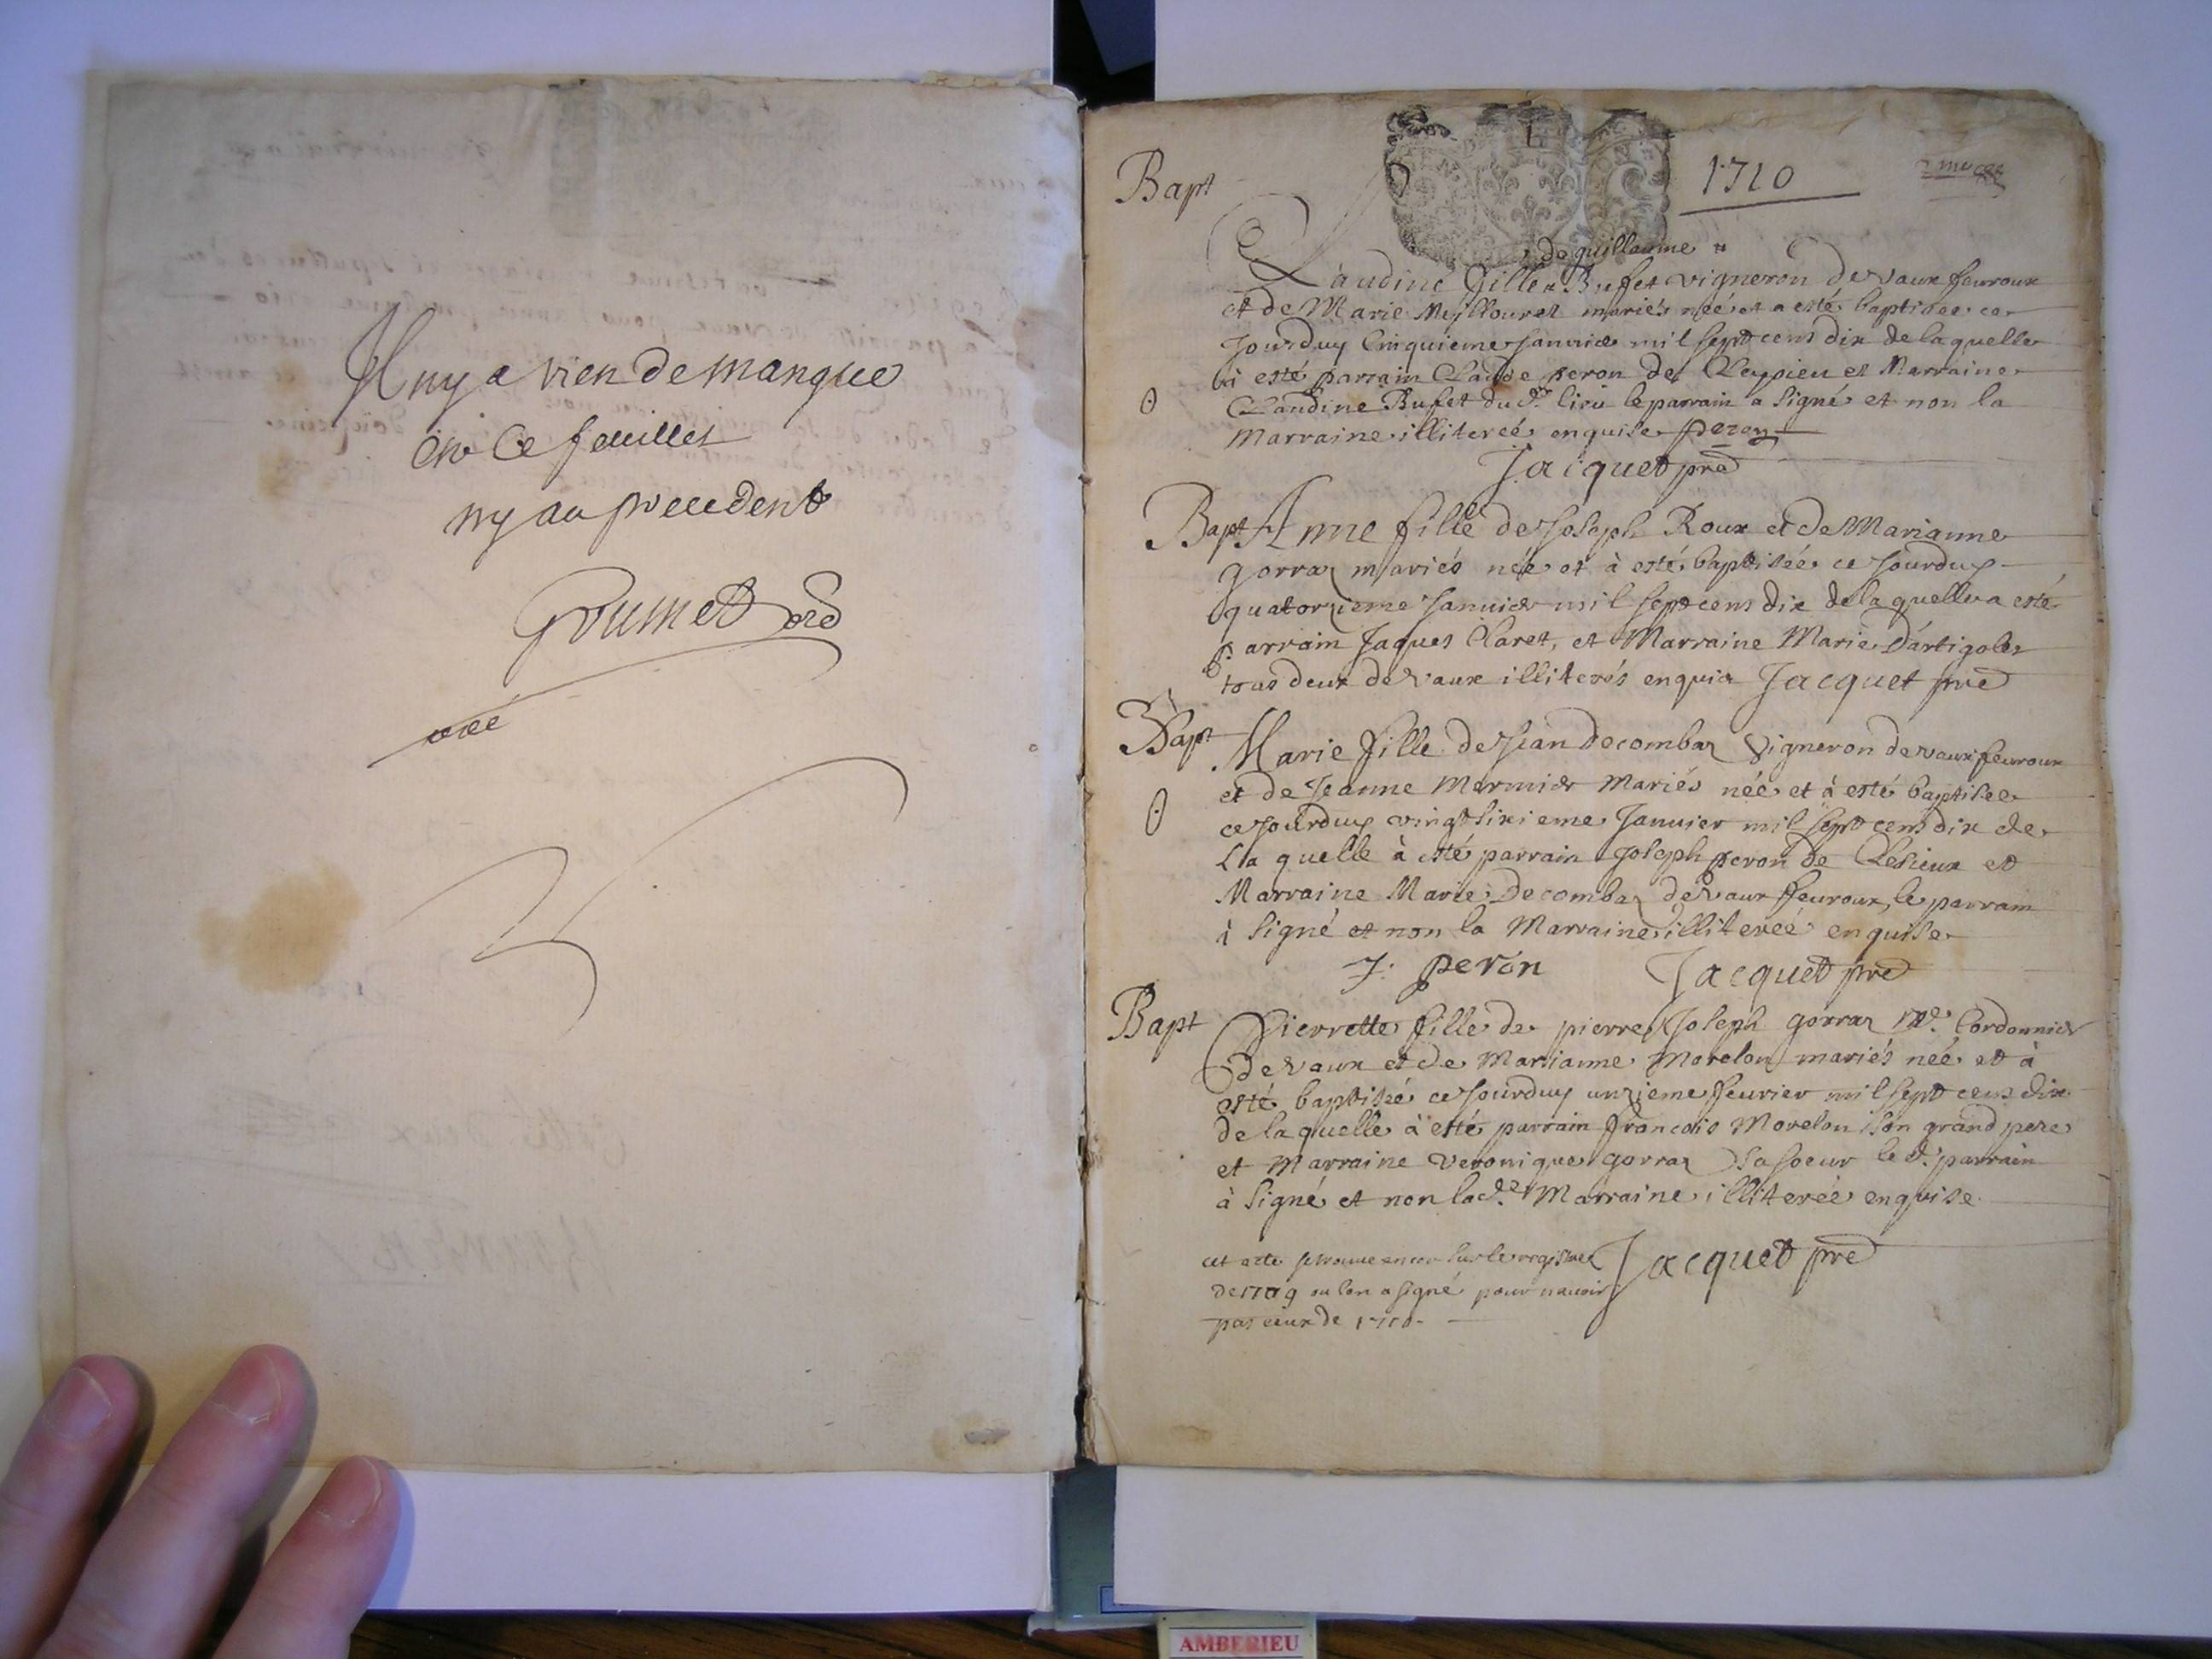 Il ny a rien de manque
en ce feuillet
ny au precedent
Bapt
1710
de guillaume
Claudine fille Bufet vigneron de vaux fevroux
et de Marie mariés née et a esté baptisee ce
jourduy cinquieme janvier mil sept cens dix de laquelle
à esté parrain Claude peron de Cleysieu et Marraine
Claudine Bufet du d. lieu le parrain a signé et non la
Marraine illitereé enquise peron
Jacquet pre
Bapt Anne fille de Joseph Roux et de Marianne
gorraz mariés née et à esté baptisée ce jourduy
quatorzieme janvier mil sept cens dix de laquelle a esté
parrain Jaques Claret, et Marraine Marie Dartigoles
tous deux de vaux illiterés enquis Jacquet pre
Bapt Marie fille de Jean Decombaz vigneron de vaux fevroux
et de Jeanne Mermier Mariés née et à esté baptisee
ce jourduy vingt sixieme Janvier mil sept cens dix de
la quelle à esté parrain Joseph peron de Clesieux et
Marraine Marie Decombaz de vaux fevroux, le parrain
à signé et non la Marraine illitereé enquise
J: peron Jacquet pre
Bapt Pierrette fille de pierre Joseph gorraz Me. Cordonnier
de vaux et de Marianne Morelon mariés née et à
esté baptisée ce jourduy unzieme fevrier mil sept cens dix
de laquelle à esté parrain francois Morelon son grand pere
et Marraine veronique gorraz sa soeur le d. parrain
à signé et non la de. Marraine illitereé enquise
cet acte se trouve encor sur le registre Jacquet pre
de 1709 ou lon a signé pour navoir
pas ceux de 1710
AMBERIEU